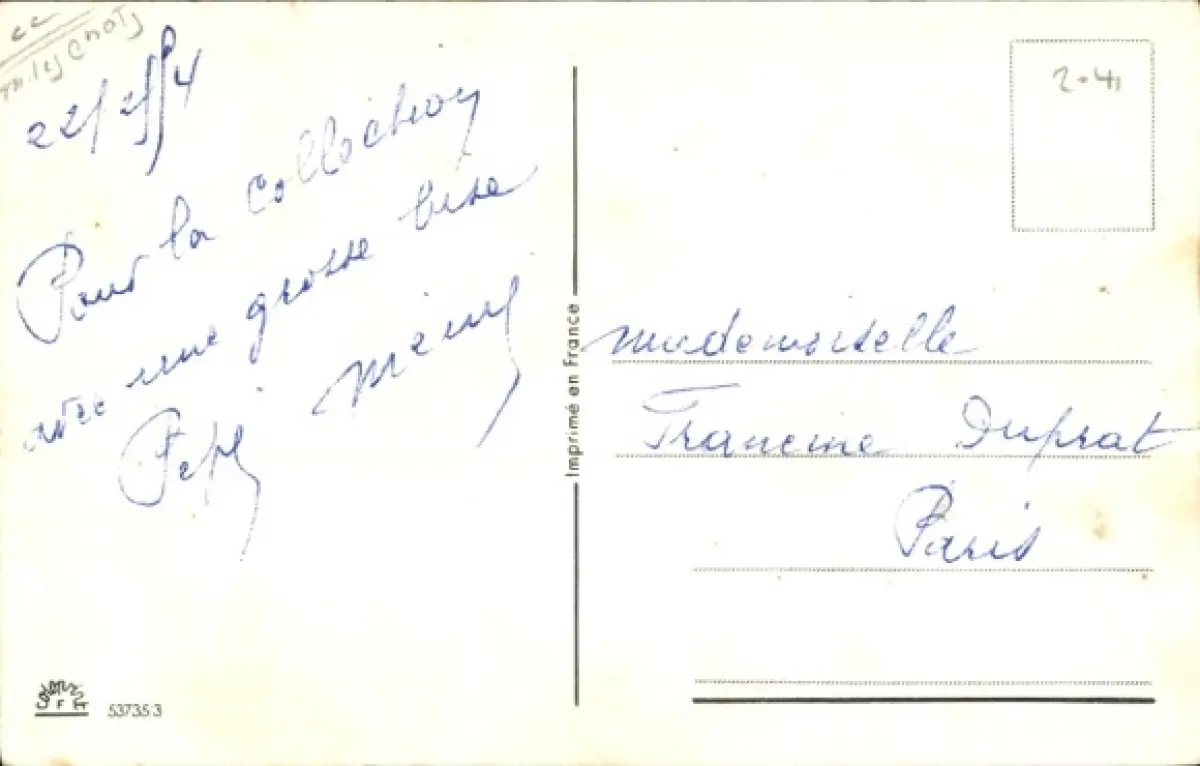 cc
22/2/54
Pour la collection
avec une grosse bise
Pépé Mémé
Imprimé en France
2.41
Mademoiselle
Francine Duprat
Paris
53735 3